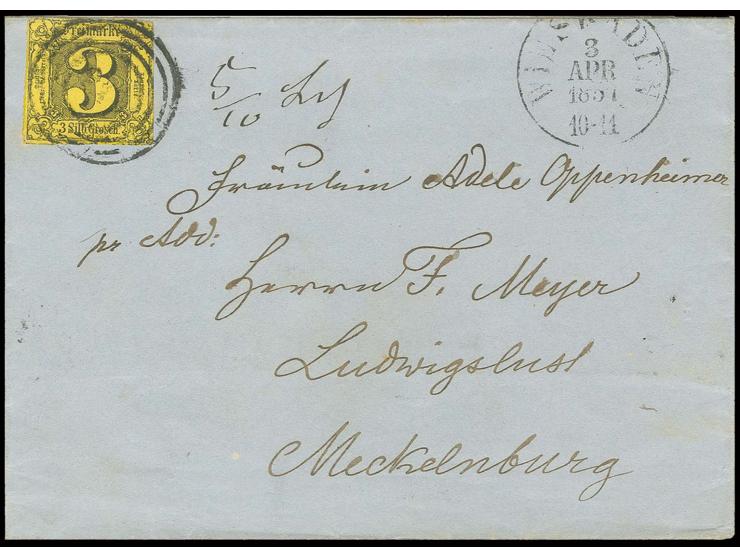 Freimarke
3
3 Silb. Grosch.
WIESBADEN
3
APR
1857
10-11
5/10
Fräulein Adele Oppenheimer
pr Add:
Herrn F. Meyer
Ludwigslust
Mecklenburg